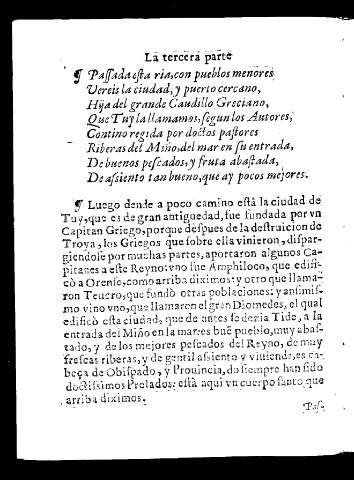 La tercera parte
¶ Passada esta ria, con pueblos menores
Vereis la ciudad, y puerto cercano,
Hija del grande Caudillo Greciano,
Que Tuy la llamamos, segun los Autores,
Contino regida por doctos pastores
Riberas del Miño, del mar en su entrada,
De buenos pescados, y fruta abastada,
De assiento tan bueno, que ay pocos mejores.
¶ Luego dende a poco camino està la ciudad de
Tuy, que es de gran antiguedad, fue fundada por vn
Capitan Griego, porque despues de la destruicion de
Troya, los Griegos que sobre ella vinieron, dispar-
giendose por muchas partes, aportaron algunos Ca-
pitanes a este Reyno: vno fue Amphiloco, que edifi-
cò a Orense, como arriba diximos: y otro que llama-
ron Teucro, que fundò otras poblaciones: y ansimis-
mo vino vno, que llamaron el gran Diomedes, el qual
edificò esta ciudad, que de antes se dezia Tide, a la
entrada del Miño en la mar: es buẽ pueblo, muy abas-
tado, y de los mejores pescados del Reyno, de muy
frescas riberas, y de gentil assiento y viuienda, es ca-
beça de Obispado, y Prouincia, do siempre han sido
doctissimos Prelados: està aqui vn cuerpo santo, que
arriba diximos.
Pas-